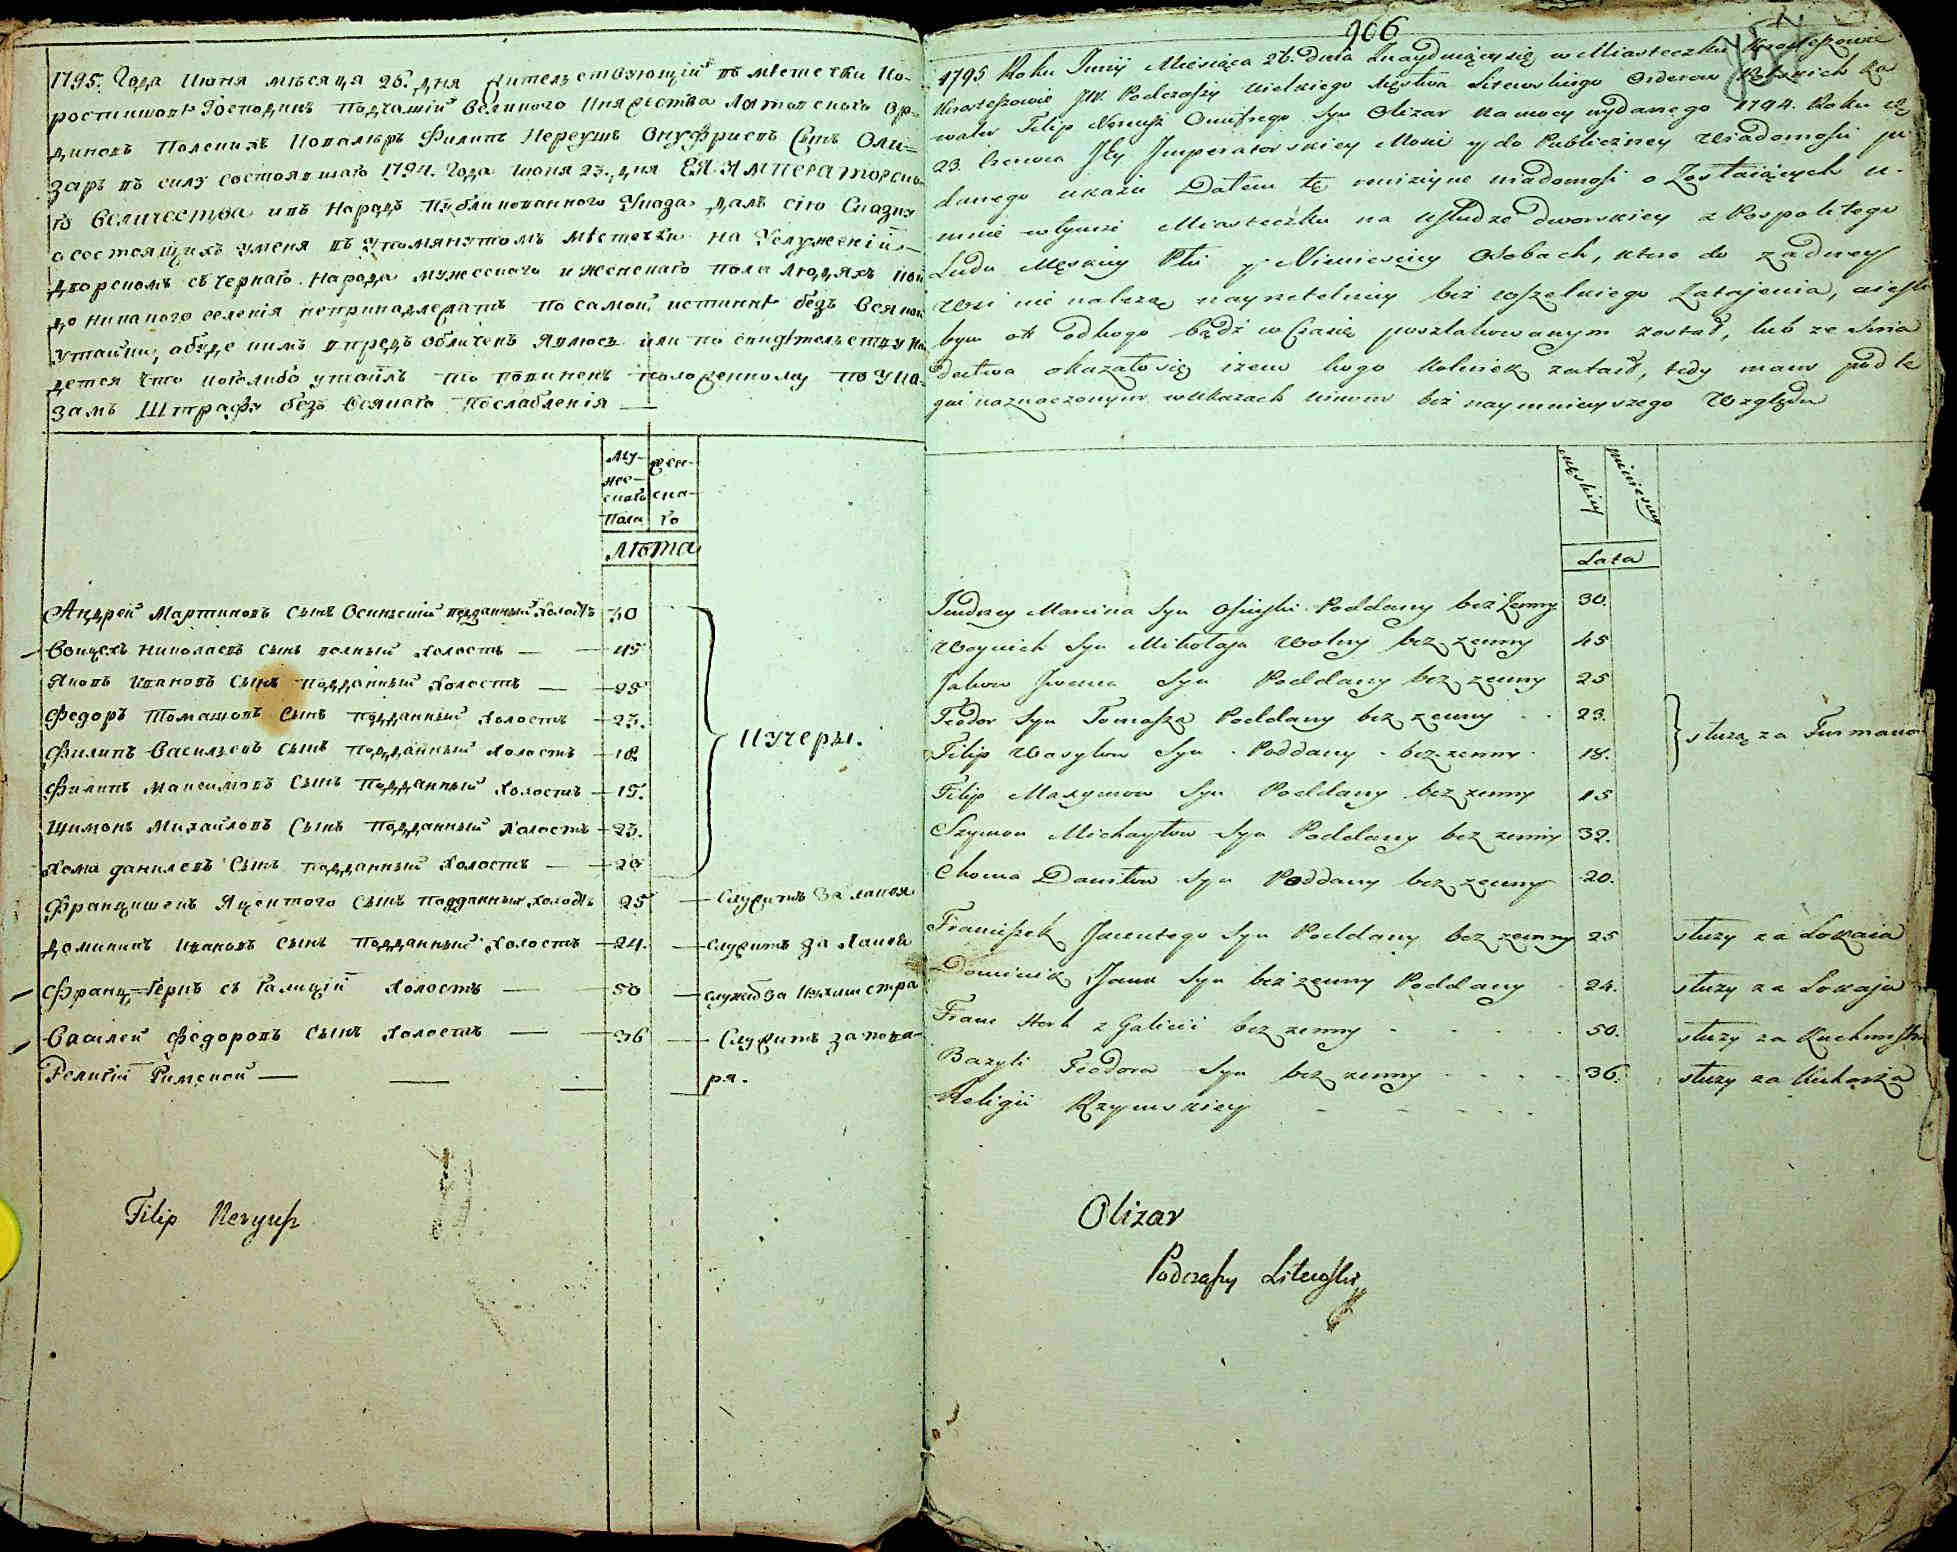 1795. Года Июня мѣсяца 26. дня Жительствующій въ мѣстечки Ко-
ростишовѣ Господинъ Подчашій Великого Княжества Литовского Ор-
диновъ Полскихъ Ковалѣръ Филипъ Нереушъ Онуфріевъ Сынъ Оли=
заръ въ силу состоявшаго 1794. Года июня 23. дня ЕЯ ИМПЕРАТОРСКА-
ГО Величества и въ Народъ Публикованного Указа далъ сію Сказку
о состоящихъ уменя въ упомянутомъ мѣстечки на Услуженіи
дворскомъ съ чернаго Народа мужеского и женскаго пола людяхъ кои
до никакого селенія непринадлежатъ по самой истиннѣ безъ всякой
утайки, а буде кимъ впредъ обличенъ явлюсь или по свидѣтельству на
дется что коголибо утаилъ то повиненъ положенному по Ука-
замъ Штрафу безъ всякаго послабленія
Му-
жес-
скаго
Пола
жен-
ска-
го
Лѣта
Андрей Мартиновъ Сынъ Осинскій подданный Холостъ 30
Войцехъ Николаевъ Сынъ волный Холостъ — 45
Яковъ Ивановъ Сынъ подданный Холостъ — 25
Федоръ Томашовъ Сынъ подданный Холостъ — 23.
Филипъ Васильевъ Сынъ подданный Холостъ — 18
Филипъ Максимовъ Сынъ подданный Холостъ — 15.
Шимонъ Михайловъ Сынъ подданный Холостъ — 23.
Хома данилевъ Сынъ подданный Холостъ — 20
Кучеры.
Францишекъ Яцентого Сынъ подданный Холостъ 25 — Служитъ за лакея
Доминикъ Ивановъ Сынъ подданный Холостъ — 24. — служитъ за Лакея
Францъ Геркъ съ Галиціи Холостъ — 50 — служитъ за Кухмистра
Василей Федоровъ Сынъ Холостъ — 36 — Служитъ за пова-
Религій Римской — ря.
Filip Neryusz
906
1795 Roku Junij Miesiąca 26. dnia Znayduiący się w Miasteczku Krosteszowie
Krosteszowie JW. Podczaszy Wielkiego Xięstwa Litewskiego Orderow Polskich Ka
waler Filip Nereusz Onufrego Syn Olizar na mocy wydanego 1794. Roku
23. Czerwca Jey Imperatorskiey Mości y do Publiczney Wiadomości po
danego ukazu Datem tę rewizyine wiadomości o Zostaiących u
mnie w tymże Miasteczku na Usłudze dworskiey z Pospolitego
Ludu Męskiey Płci y Niewiesciey Osobach, ktore do zadney
Wsi nie nalezą nayrzetelniey bez wszelkiego Zatajenia, a ieżeli
bym od kogo bądź w Czasie poszlakowanym został, lub ze Swia
dectwa okazało się izem kogo kolwiek zataił, tedy mam podle
gać naznaczonym w ukazach winom bez naymnieyszego Względu
męskiey
niewiesciey
Lata
Jendrzey Marcina Syn Osinski Poddany bez Zenny 30.
Woyciech Syn Mikołaja Wolny bez zenny 45
Jakow Jwana Syn Poddany bez zenny 25
Teodor Syn Tomasza Poddany bez zenny . . 23.
Filip Wasylow Syn . Poddany . bez zenny . 18.
Filip Maxymow Syn Poddany bez zenny 15
Szymon Michayłow Syn Poddany bez zenny 32.
Choma Daniłow Syn Poddany bez zenny 20.
służą za Furmanow
Franciszek Jacentego Syn Poddany bez zenny 25 służy za Lokaia
Dominik Jana Syn bez zenny Poddany . 24. służy za Lokaja
Franc Herk z Galicii bez zenny . . . . 50. służy za Kuchmistra
Bazyli Teodora Syn bez zenny . . . . 36. służy za Kucharza
Religii Rzymskiey
Olizar
Podczaszy Litewski